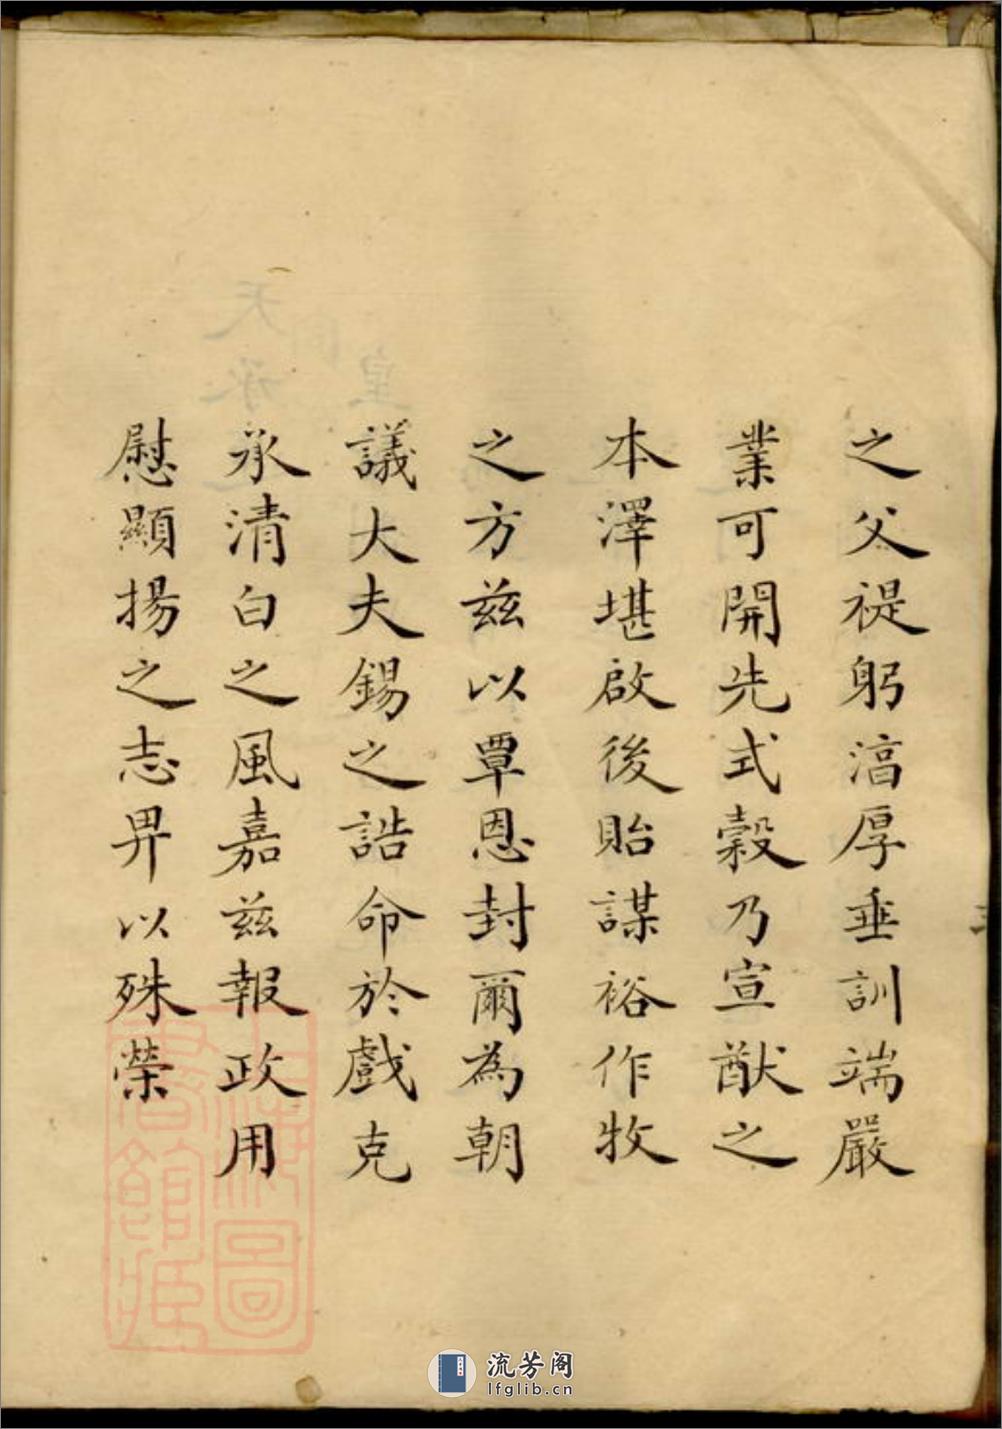 之父禔躬湻厚垂訓端嚴
業可開先式穀乃宣猷之
本澤堪啟後貽謀裕作牧
之方兹以覃恩封爾為朝
議大夫錫之誥命於戲克
承清白之風嘉兹報政用
慰顯揚之志畀以殊榮
流芳阁
lfglib.cn